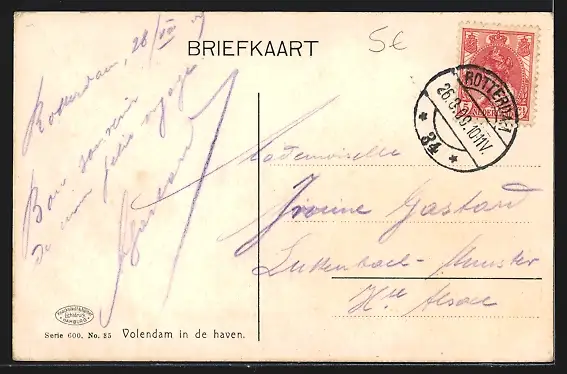 BRIEFKAART
5e
Rotterdam, 28
Bon souvenir
de mon joli voyage
ROTTERDAM
34
5
Mademoiselle
Yvonne Gastard
Luttenbach-Munster
Hte Alsace
Serie 600, No. 85 Volendam in de haven.